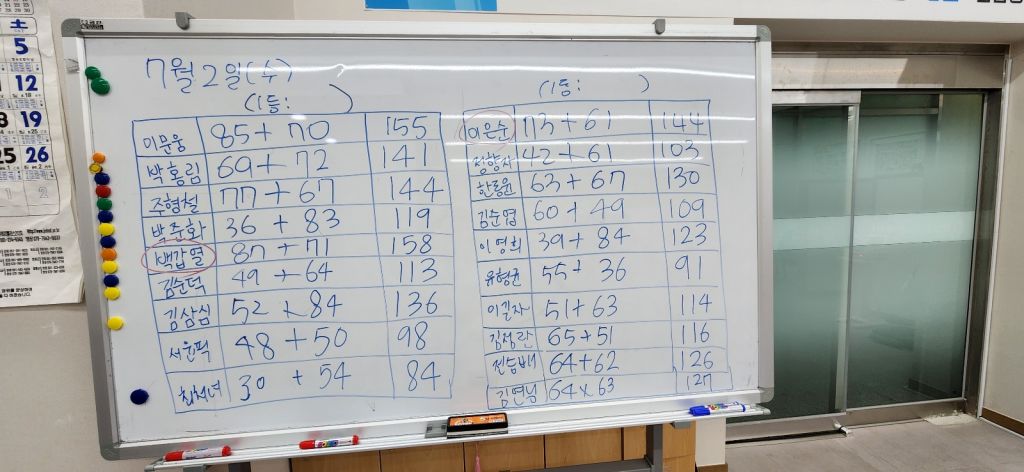 7월 2일(수)
(1등: )
이문웅 85+70 155
박홍림 69+72 141
주형철 77+67 144
박준화 36+83 119
백갑열 87+71 158
김순덕 49+64 113
김삼심 52+84 136
서원픽 48+50 98
30+54 84
(1등: )
이은순 73+61 144
정향자 42+61 103
한동윤 63+67 130
김순엽 60+49 109
이영희 39+84 123
유형균 55+36 91
이길자 51+63 114
김정란 65+51 116
전승배 64+62 126
김연님 64×63 127
土
5
12
19
25 26
1 2